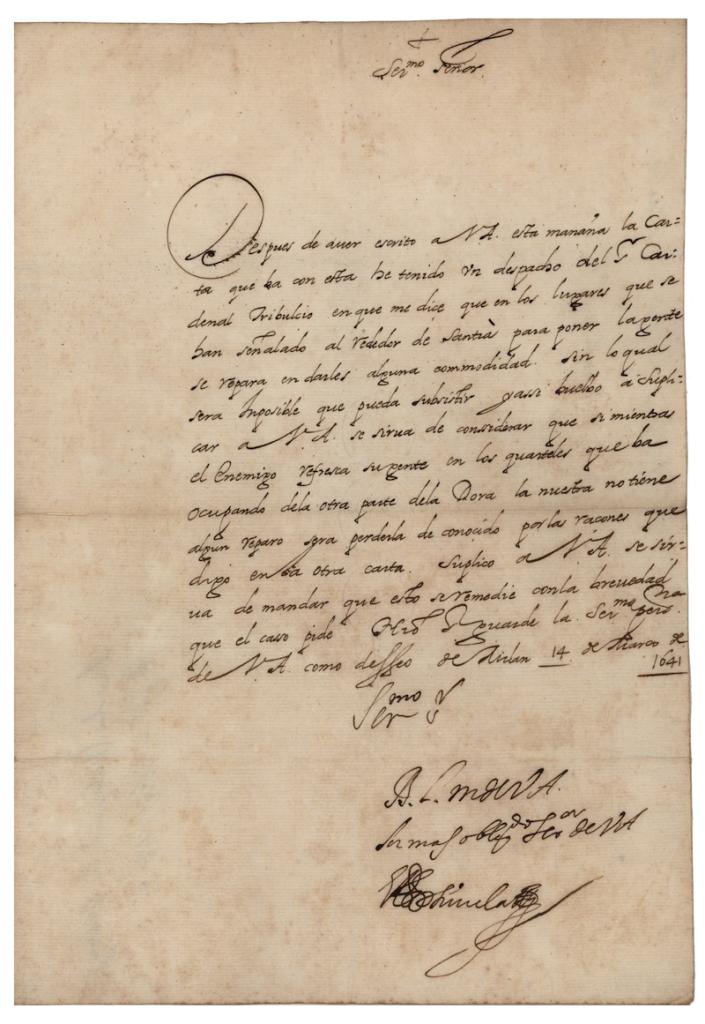 +
Ser.mo Señor.
Despues de auer escrito a V.A. esta mañana la Car=
ta que ba con esta he tenido vn despacho del S.r Car-
denal Tribulcio en que me dice que en los lugares que se
han señalado al rededor de Santià para poner la gente
se repara en darles alguna commodidad. sin lo qual
sera Inposible que pueda subsistir yassi buelbo a Supli-
car a V.A. se sirua de considerar que si mientras
el Enemigo refresca su gente en los quarteles que ba
ocupando dela otra parte dela Dora la nuestra no tiene
algun reparo sera perderla de conocido por las racones que
digo en la otra carta. Suplico a V.A. se sir-
ua de mandar que esto se remedie con la breuedad
que el caso pide guarde la Ser.ma perso.na
de V.A. como desseo de Milan 14 de Março de
1641
Ser.mo S.r
B.L. M de V A.
Ser mas oblig.do Ser.or de V A